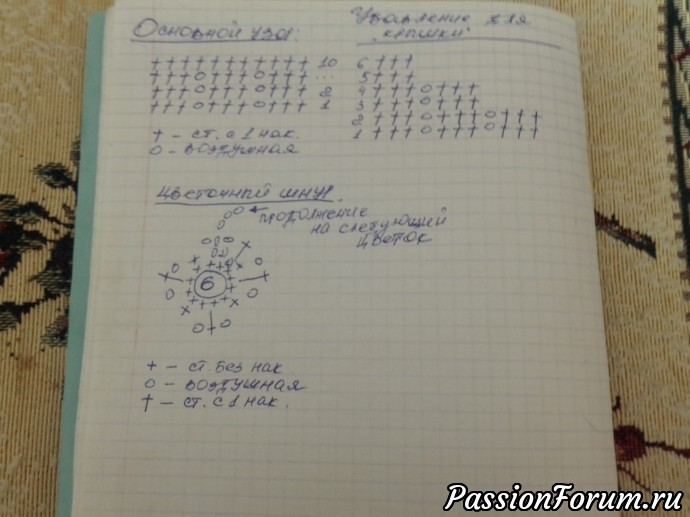 Основной узор:
+++++++++++ 10
+++о+++о+++ ...
+++о+++о+++ 2
+++о+++о+++ 1
† – ст. с 1 нак.
о – воздушная
Убавление для
"кепушки"
6 +++
5 +++
4 +++о+++
3 +++о+++
2 +++о+++о+++
1 +++о+++о+++
Цветочный шнур.
продолжение
на следующий
цветок
6
+ – ст. без нак
о – воздушная
† – ст. с 1 нак.
PassionForum.ru